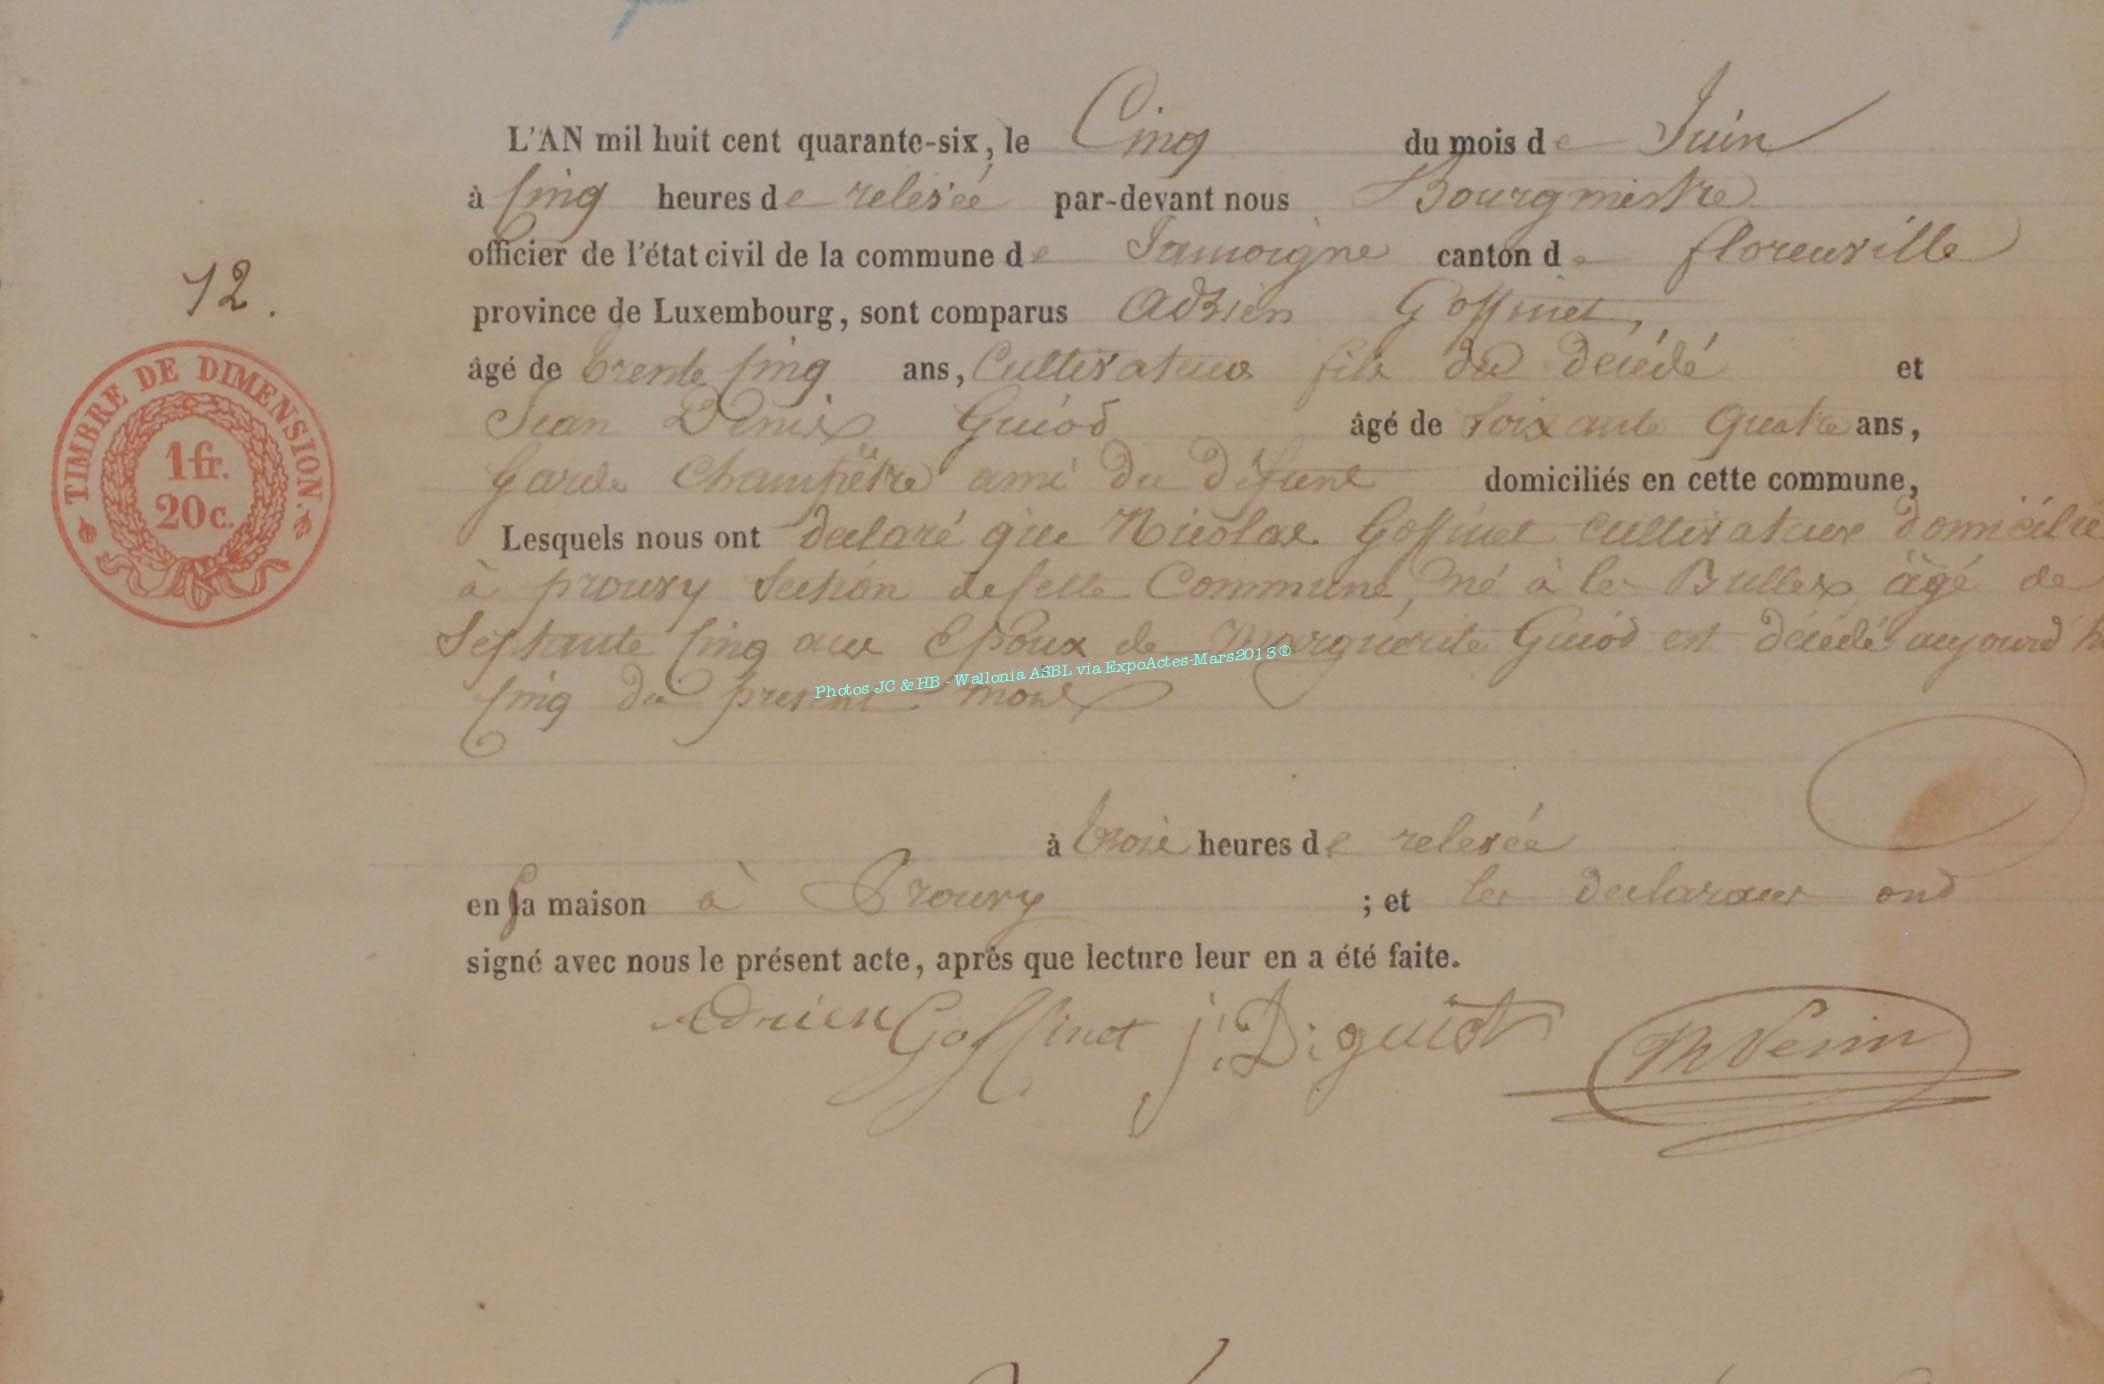 L'AN mil huit cent quarante-six, le Cinq du mois de Juin
à Cinq heures de relevée par-devant nous Bourgmestre
officier de l'état civil de la commune de Jamoigne canton de florenville
12.
province de Luxembourg, sont comparus Adrien Goffinet,
âgé de trente Cinq ans, Cultivateur fils du décédé et
TIMBRE DE DIMENSION.
1 fr.
20 c.
Jean Denis Guiod âgé de Soixante Quatre ans,
garde Champêtre ami du défunt domiciliés en cette commune,
Lesquels nous ont declaré que Nicolas Goffinet cultivateur domicilié
à prouvy Section de Cette Commune, né à les Bulles, âgé de
Septante Cinq ans Epoux de Marguerite Guiod est décédé aujourd'hu
Cinq du present mois
Photos JC & HB - Wallonia ASBL via ExpoActes-Mars2013®
à trois heures de relevée
en sa maison à Prouvy ; et les declarans ont
signé avec nous le présent acte, après que lecture leur en a été faite.
Adrien Goffinet j: D: guiot